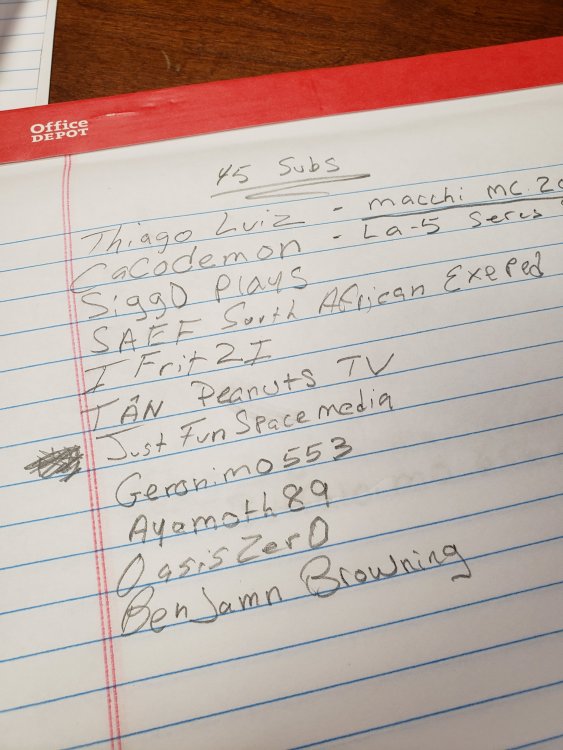 Office
DEPOT
45 Subs
Thiago Luiz - macchi mc. 20
Cacodemon - La-5 Seres
SiggO Plays
SAEF South African Exeped
I Frit2I
TÂN Peanuts TV
Just Fun Space media
Geronimo553
Ayamoth89
OasisZerO
BenJamn Browning